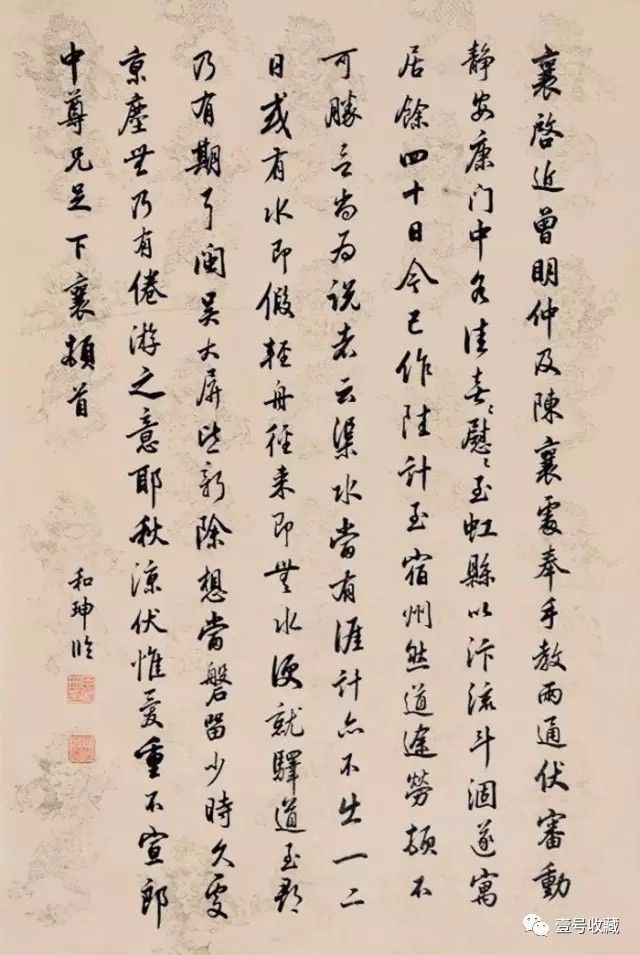 襄啓近曾明仲及陳襄處奉手教兩通伏審動
静安康门中各佳喜々慰々至虹縣以汴流斗涸遂寓
居餘四十日今已作陸計至宿州然道途勞頓不
可勝言尚为説者云渠水當有涯計亦不出一二
日或有水即假輕舟徑来即無水便就驛道至都
乃有期耳閩吴大屏些新除想當磐留少時久處
京塵無乃有倦游之意耶秋涼伏惟愛重不宣郎
中尊兄足下襄頓首
和珅臨
壹号收藏